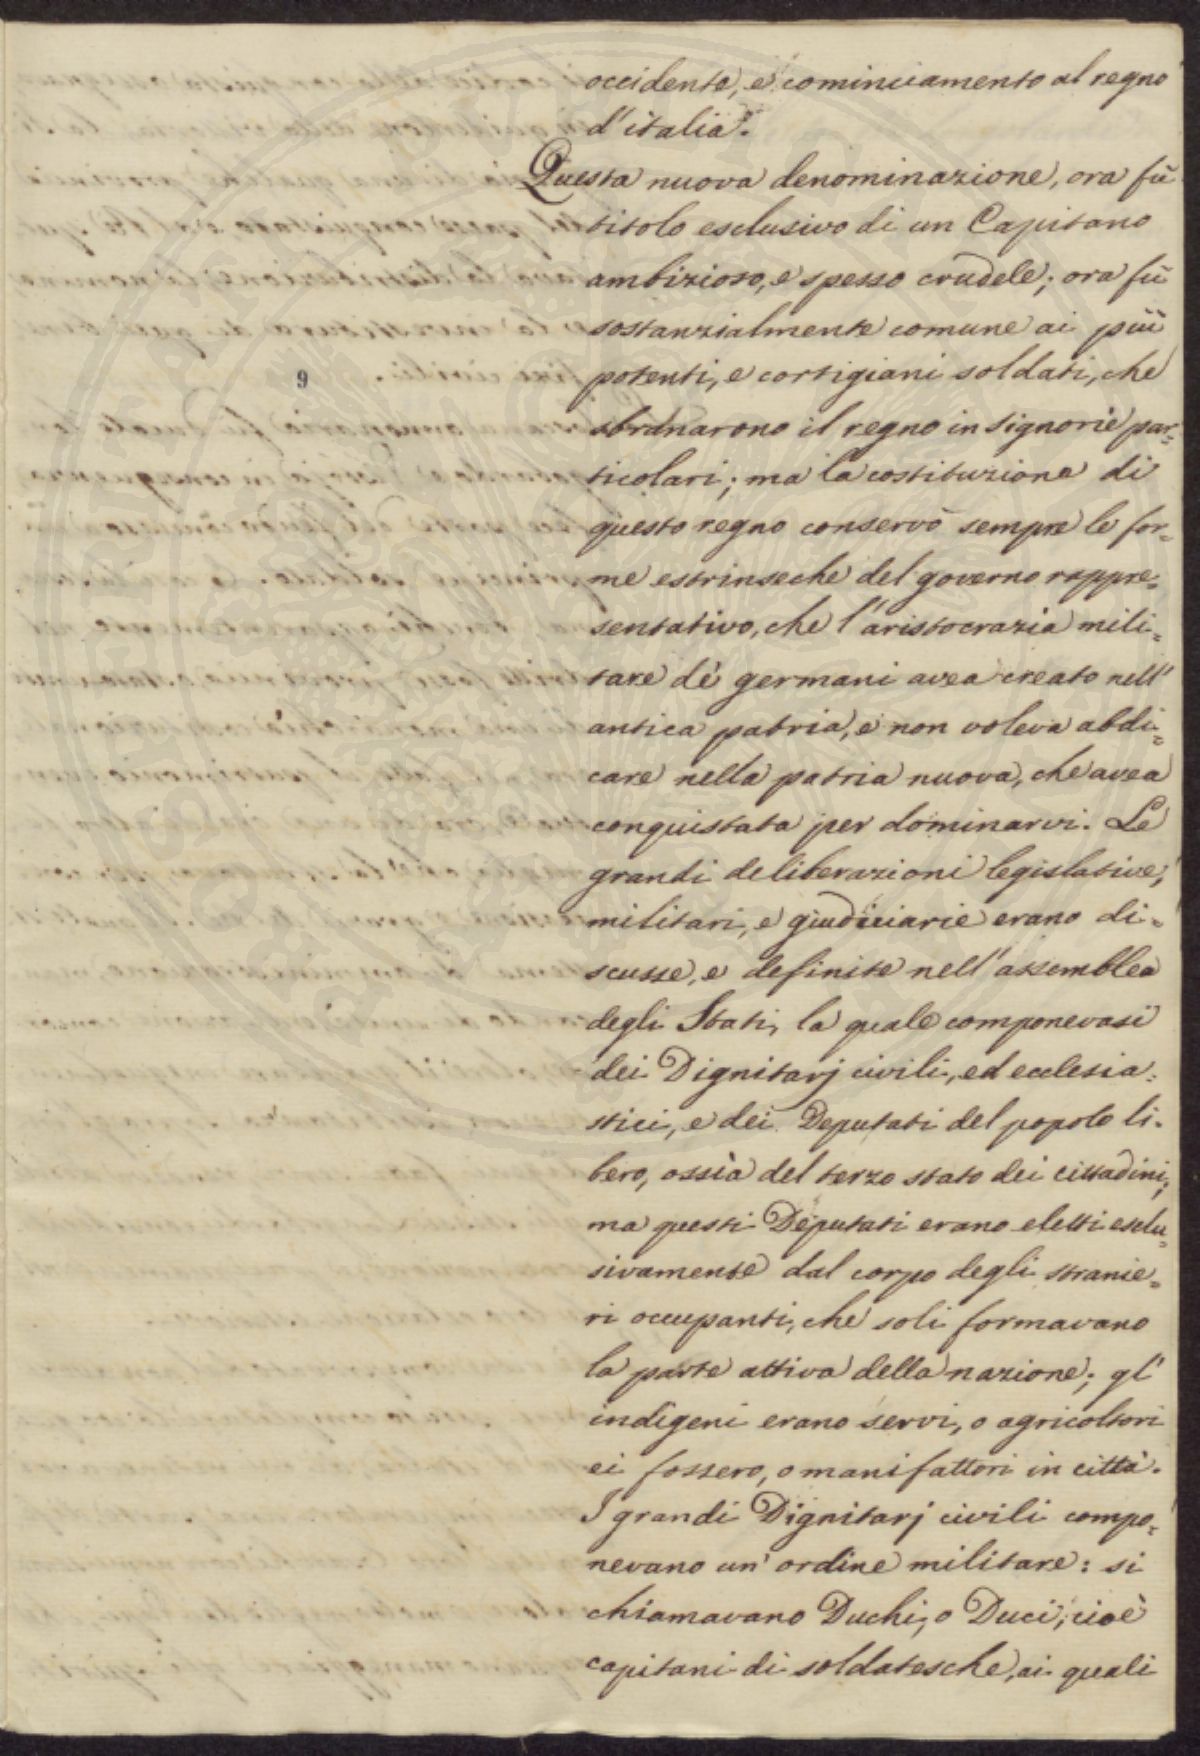 occidente, e cominciamento al regno
d'italia.
Questa nuova denominazione, ora fù
titolo esclusivo di un Capitano
ambizioso, e spesso crudele; ora fù
sostanzialmente comune ai più
potenti, e cortigiani soldati, che
9
sbranarono il regno in signorie par=
ticolari; ma la costituzione di
questo regno conservò sempre le for=
me estrinseche del governo rappre=
sentativo, che l'aristocrazia mili=
tare dè germani avea creato nell'
antica patria, e non voleva abdi=
care nella patria nuova, che avea
conquistata per dominarvi. Le
grandi deliberazioni legislative,
militari, e giudiciarie erano di=
scusse, e definite nell'assemblea
degli Stati, la quale componevasi
dei Dignitarj civili, ed ecclesia=
stici, e dei Deputati del popolo li=
bero, ossia del terzo stato dei cittadini;
ma questi Deputati erano eletti esclu=
sivamente dal corpo degli stranie=
ri occupanti, che soli formavano
la parte attiva della nazione; gl'
indigeni erano servi, o agricoltori
ei fossero, o manifattori in città.
I grandi Dignitarj civili compo=
nevano un' ordine militare: si
chiamavano Duchi, o Duci, cioè
capitani di soldatesche, ai quali